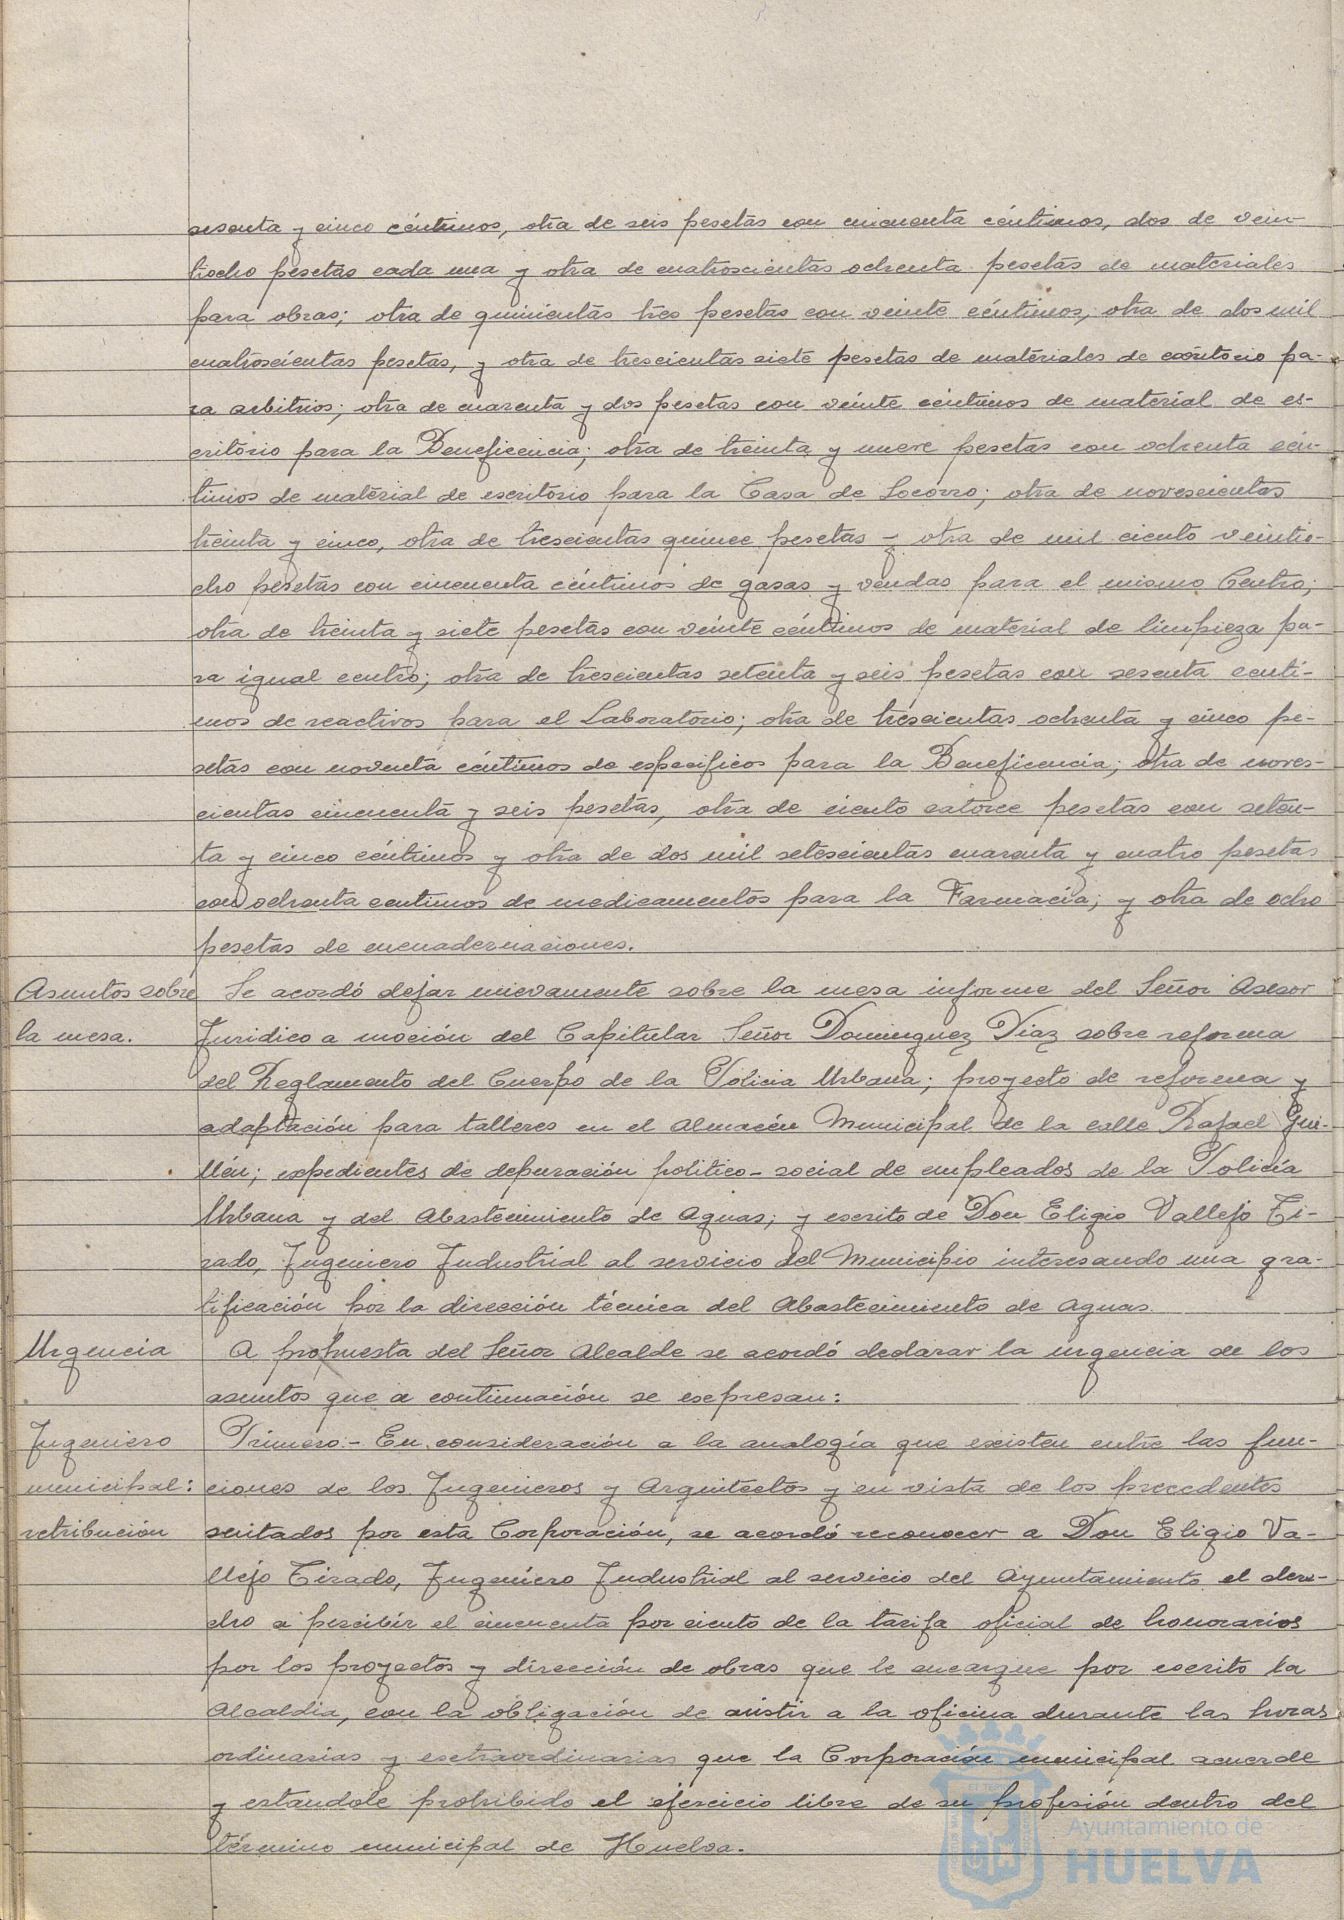 sesenta y cinco céntimos, otra de seis pesetas con cincuenta céntimos, dos de vein-
tiocho pesetas cada una y otra de cuatroscientas ochenta pesetas de materiales
para obras; otra de quinientas tres pesetas con veinte céntimos, otra de dos mil
cuatroscientas pesetas, y otra de trescientas siete pesetas de materiales de escritorio pa-
ra arbitrios; otra de cuarenta y dos pesetas con veinte céntimos de material de es-
critorio para la Beneficencia; otra de treinta y nueve pesetas con ochenta cén-
timos de material de escritorio para la Casa de Socorro; otra de novescientas
treinta y cinco, otra de trescientas quince pesetas y otra de mil ciento veintio-
cho pesetas con cincuenta céntimos de gasas y vendas para el mismo Centro;
otra de treinta y siete pesetas con veinte céntimos de material de limpieza pa-
ra igual centro; otra de trescientas setenta y seis pesetas con sesenta cénti-
mos de reactivos para el Laboratorio; otra de trescientas ochenta y cinco pe-
setas con noventa céntimos de específicos para la Beneficencia; otra de noves-
cientas cincuenta y seis pesetas, otra de ciento catorce pesetas con seten-
ta y cinco céntimos y otra de dos mil setescientas cuarenta y cuatro pesetas
con ochenta centimos de medicamentos para la Farmacía; y otra de ocho
pesetas de encuadernaciones.
Asuntos sobre la mesa.
Se acordó dejar nuevamente sobre la mesa informe del Señor Asesor
Juridico a moción del Capitular Señor Dominguez Diaz sobre reforma
del Reglamento del Cuerpo de la Policia Urbana; proyecto de reforma y
adaptación para talleres en el Almacén Municipal de la calle Rafael Gui-
llén; expedientes de depuración politico-social de empleados de la Policía
Urbana y del Abastecimiento de Aguas; y escrito de Don Eligio Vallejo Ti-
rado, Ingeniero Industrial al servicio del Municipio interesando una gra-
tificación por la dirección técnica del Abastecimiento de Aguas.
Urgencia
A propuesta del Señor Alcalde se acordó declarar la urgencia de los
asuntos que a continuación se expresan:
Ingeniero
municipal:
retribución
Primero.- En consideración a la analogía que existen entre las fun-
ciones de los Ingenieros y Arquitectos y en vista de los precedentes
sentados por esta Corporación, se acordó reconocer a Don Eligio Va-
llejo Tirado, Ingeniero Industrial al servicio del Ayuntamiento el dere-
cho a percibir el cincuenta por ciento de la tarifa oficial de honorarios
por los proyectos y dirección de obras que le encargue por escrito la
Alcaldia, con la obligación de asistir a la oficina durante las horas
ordinarias y extraordinarias que la Corporación municipal acuerde
y estandole prohibido el ejercicio libre de su profesión dentro del
término municipal de Huelva.
Ayuntamiento de
HUELVA